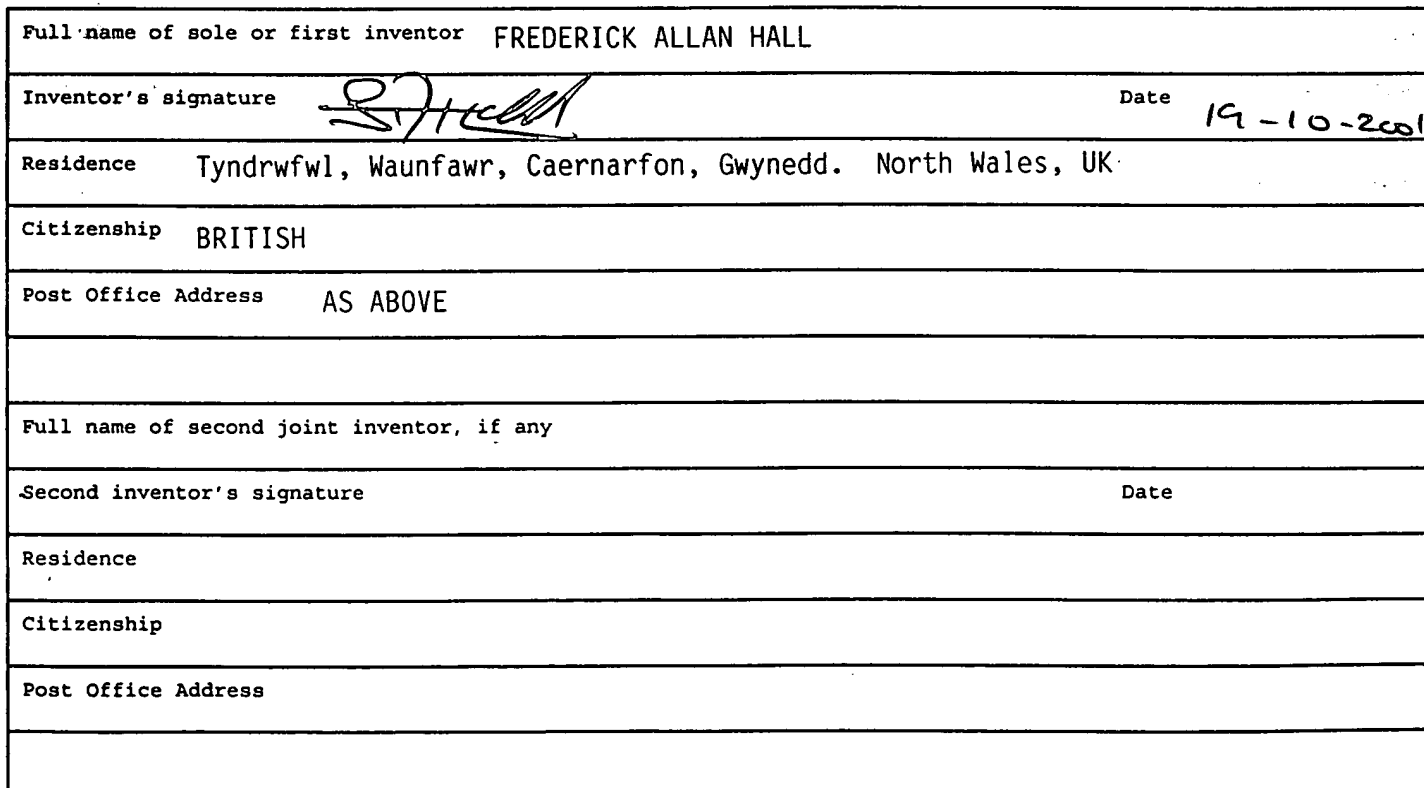 Full name of sole or first inventor FREDERICK ALLAN HALL
Inventor's signature Date 19-10-2001
Residence Tyndrwfwl, Waunfawr, Caernarfon, Gwynedd. North Wales, UK
Citizenship BRITISH
Post Office Address AS ABOVE
Full name of second joint inventor, if any
Second inventor's signature Date
Residence
Citizenship
Post Office Address